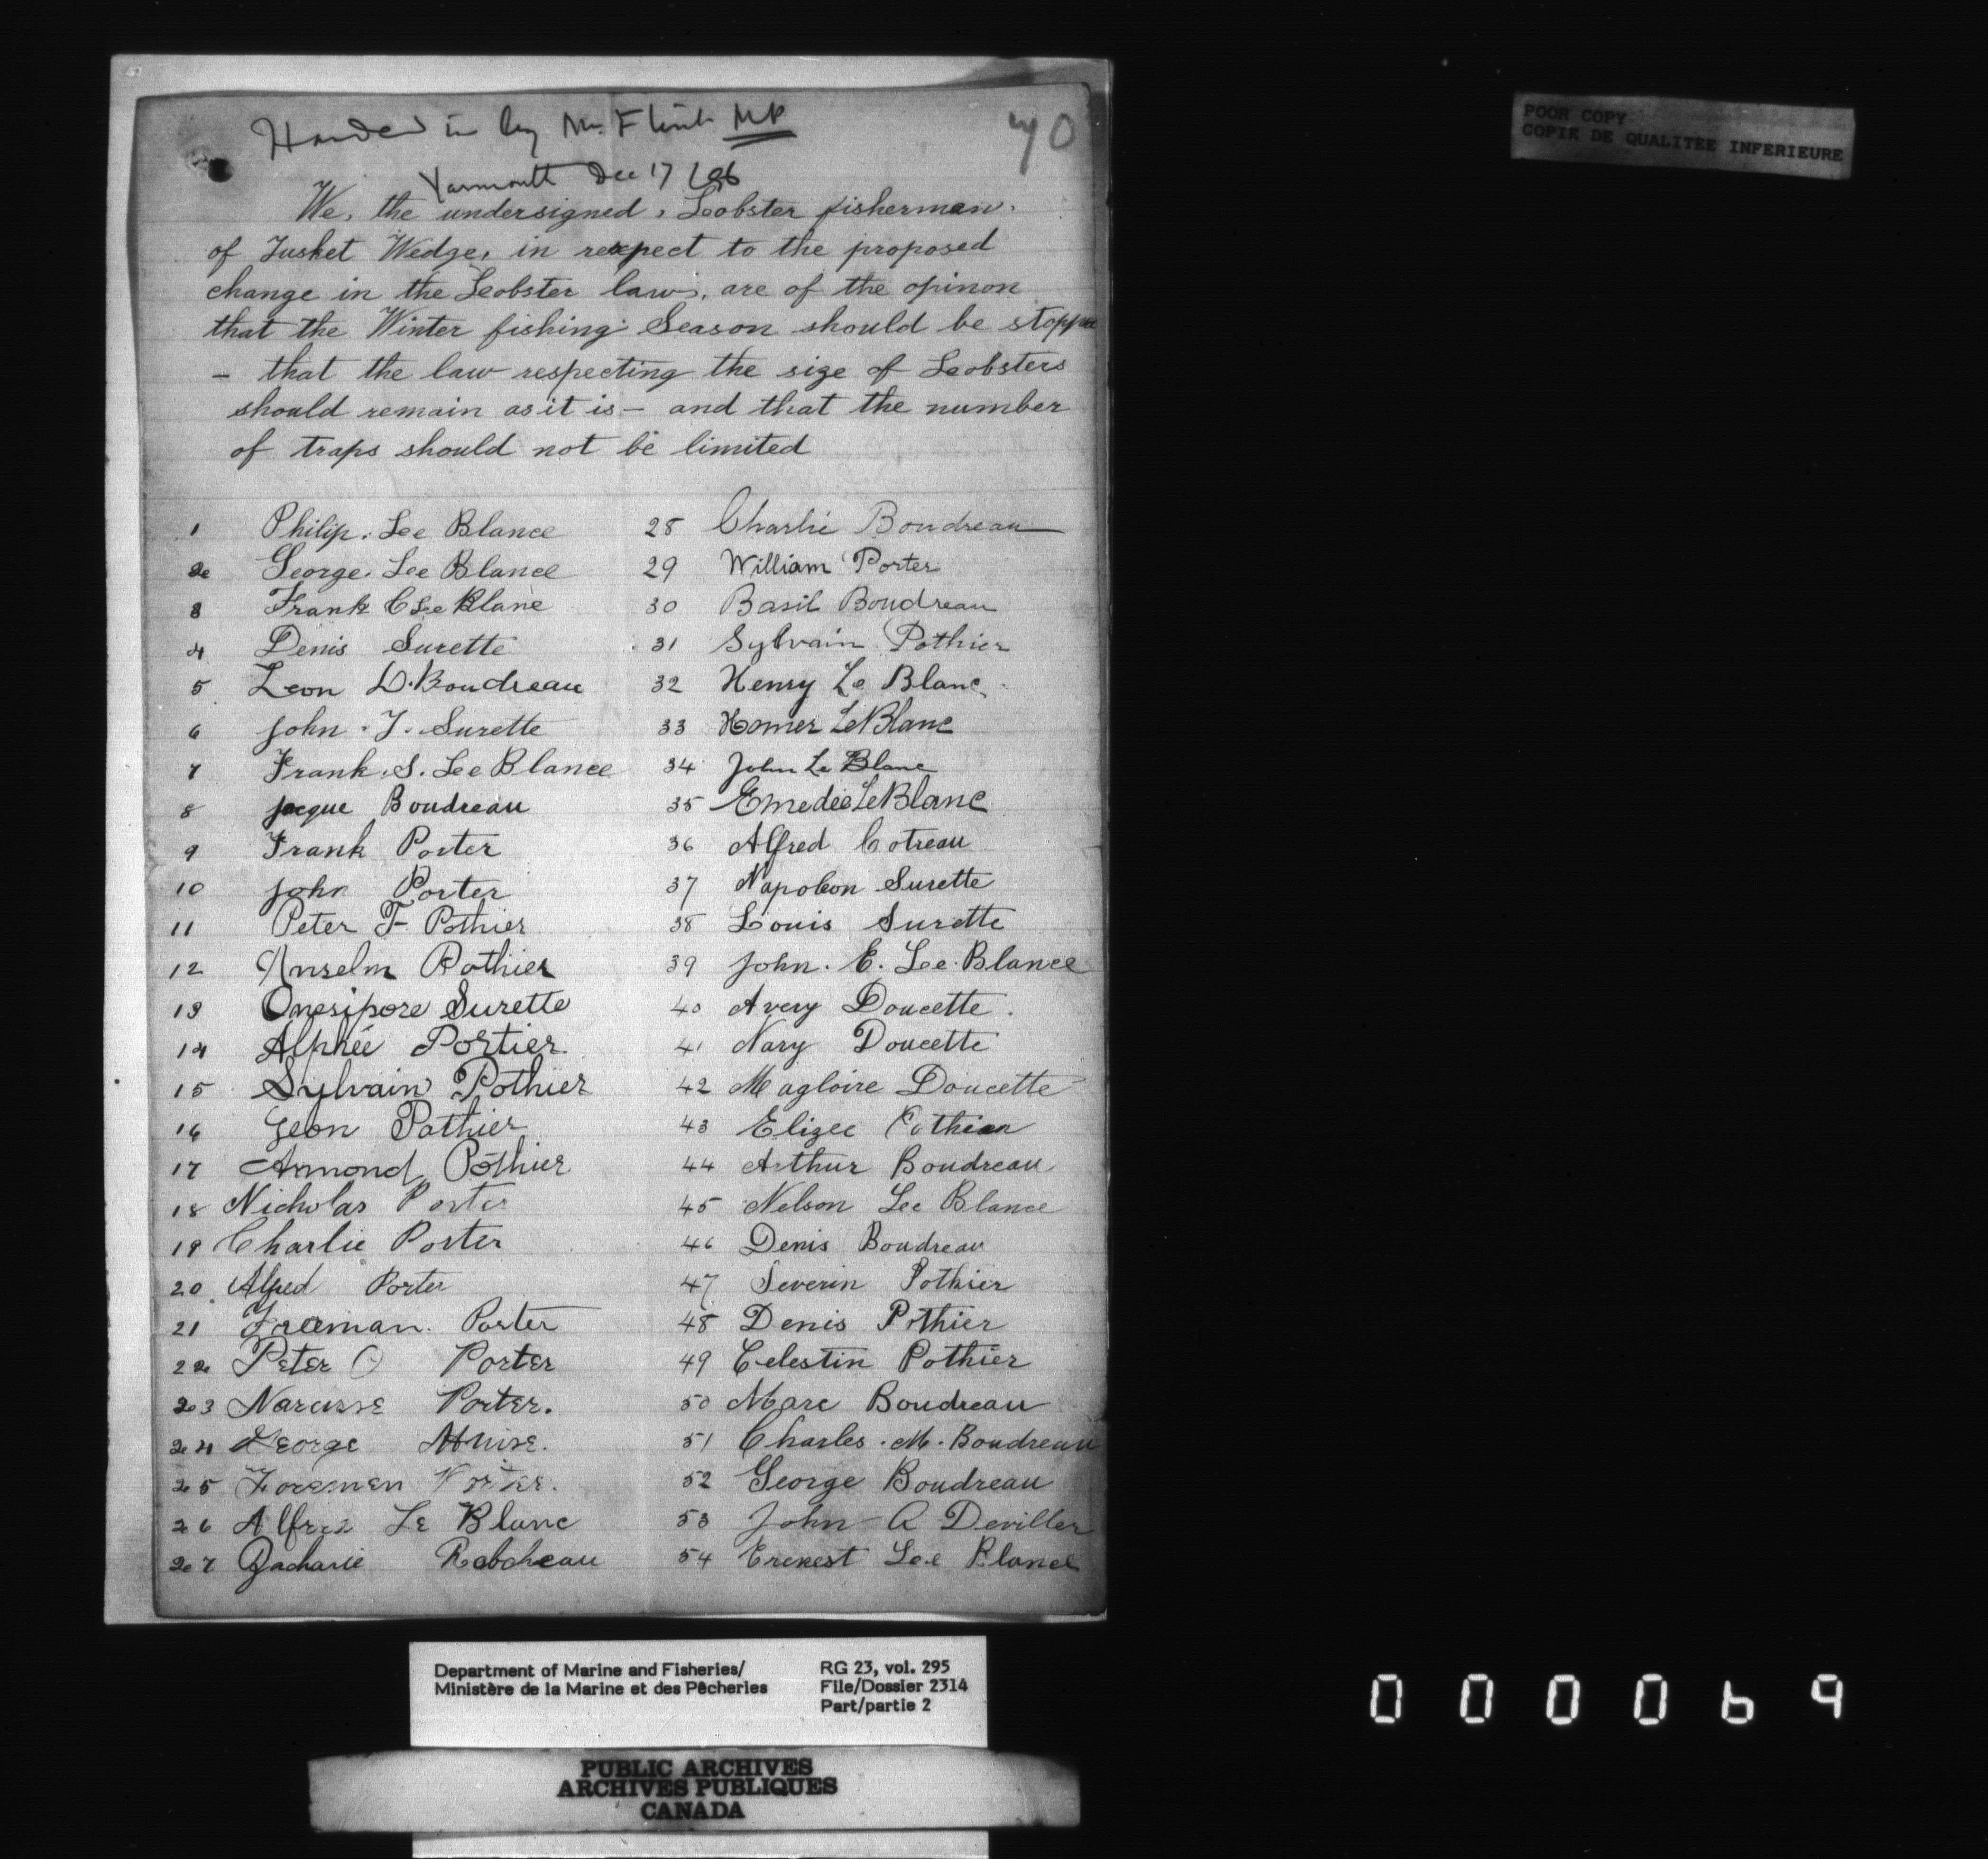 Handed in by Mr. Flint MP
70
Yarmouth Dec 17/96
We, the undersigned, Leobster fishermen.
of Tusket Wedge, in respect to the proposed
change in the Leobster law, are of the opinon
that the Winter fishing Season should be stopped
– that the law respecting the size of Leobsters
should remain as it is – and that the number
of traps should not be limited
1 Philip. Lee Blance
2 George. Lee Blance
3 Frank C Lee Blane
4 Denis Surette
5 Leon D. Boudreau
6 John. J. Surette
7 Frank. S. Lee Blance
8 Jacque Boudreau
9 Frank Porter
10 John Porter
11 Peter F Pothier
12 Anselm Pothier
13 Onesipore Surette
14 Alphée Portier.
15 Sylvain Pothier
16 Leon Pothier
17 Armond Pothier
18 Nicholas Porter
19 Charlie Porter
20 Alfred Porter
21 Freeman. Porter
22 Peter O Porter
23 Narcisse Porter.
24 George Muise.
25 Foremen Porter.
26 Alfred Le Blanc
27 Zacharie Robcheau
28 Charlie Boudreau
29 William Porter
30 Basil Boudreau
31 Sylvain Pothier
32 Henry Le Blanc
33 Homer LeBlanc
34 John Le Blanc
35 Emedée LeBlanc
36 Alfred Cotreau
37 Napoleon Surette
38 Louis Surette
39 John. E. Lee. Blance
40 Avery Doucette.
41 Nary Doucette
42 Magloire Doucette
43 Elizee Pothier
44 Arthur Boudreau
45 Nelson Lee Blance
46 Denis Boudreau
47 Severin Pothier
48 Denis Pothier
49 Celestin Pothier
50 Marc Boudreau
51 Charles. M. Boudreau
52 George Boudreau
53 John A Deviller
54 Erenest Lee Blance
POOR COPY
COPIE DE QUALITEE INFERIEURE
Department of Marine and Fisheries/
Ministère de la Marine et des Pêcheries
RG 23, vol. 295
File/Dossier 2314
Part/partie 2
PUBLIC ARCHIVES
ARCHIVES PUBLIQUES
CANADA
000069